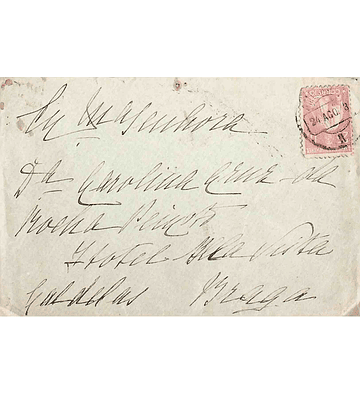 Ex Ma Senhora
Da Carolina Cruz da
Rocha Peixoto
Hotel Bela Vista
Caldelas Braga
24 AGO